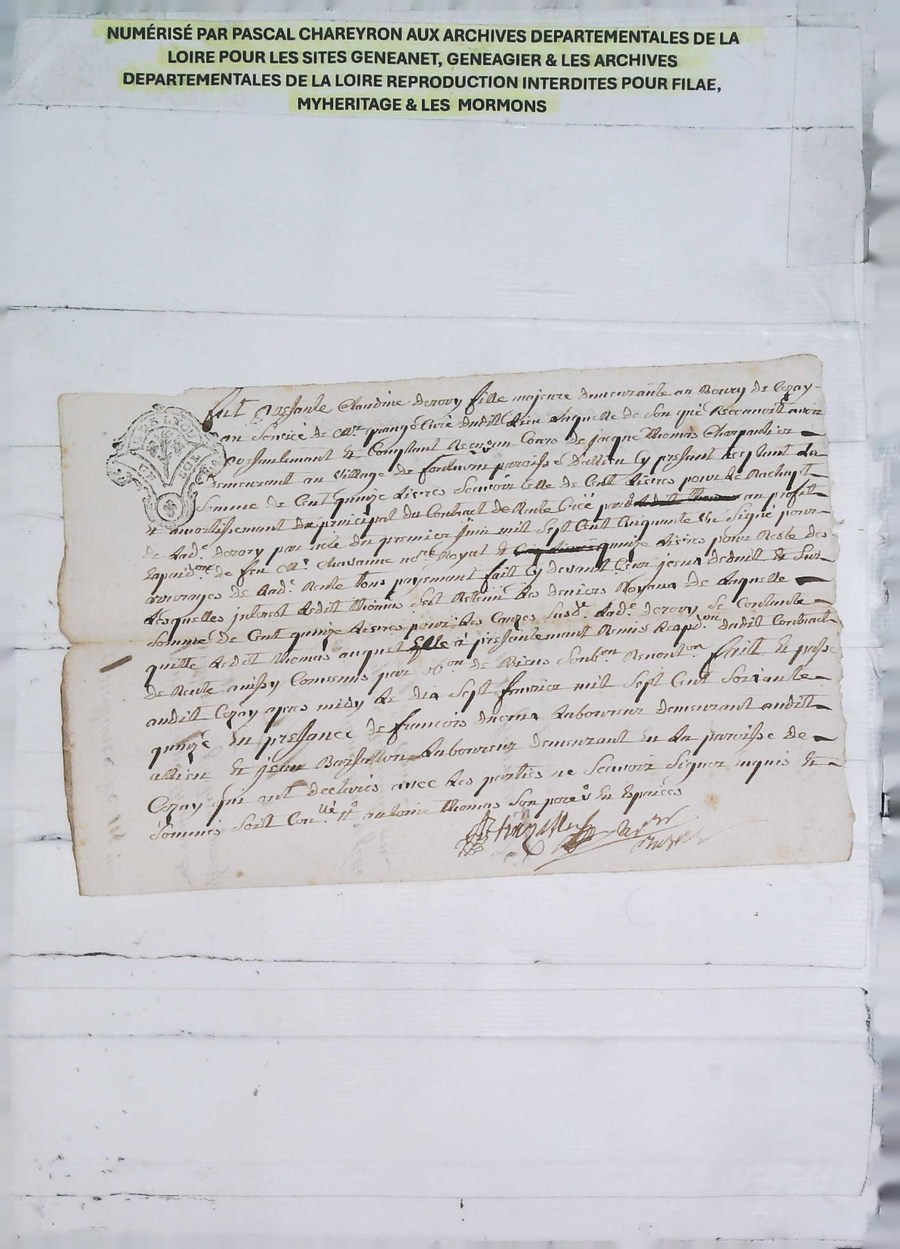 NUMÉRISÉ PAR PASCAL CHAREYRON AUX ARCHIVES DEPARTEMENTALES DE LA
LOIRE POUR LES SITES GENEANET, GENEAGIER & LES ARCHIVES
DEPARTEMENTALES DE LA LOIRE REPRODUCTION INTERDITES POUR FILAE,
MYHERITAGE & LES MORMONS
fut presante Claudine derory fille majeure demeurante au Bourg de Cezay
au service de Mre curé dudit lieu laquelle de son gré Reconnoit avoir
presantement et Comptant Reçu de jacque Thomas Charpantier
demeurant au village de paroisse d'allieu Cy presant acceptant La
Somme de Cent quinze Livres Scavoir celle de Cent Livres pour le Rachapt
et amortissement du principal du Contract de Rente Créé au profit
de Lad. derory par acte du premier juin mil Sept Cent Cinquante Signé pour
de feu Mr Chavanne nore Royal et quinze Livres pour Reste des
arrerages de Lad. Rente tous payement fait Cy devant deduit et Sur
Lesquelles Ledit Thomas Les deniers Royaux de Laquelle
Somme de Cent quinze Livres pour Les Causes Susd. Lad. derory Se Contante
quitte Ledit Thomas auquel Elle à presantement Remis dudit Contract
de Rente ainsy Convenus par de Biens fait et passé
audit Cezay apres midy Le dix Sept fevrier mil Sept Cent Soixante
quinze En pressance de françois Laboureur demeurant audit
allieu et jean Laboureur demeurant En La paroisse de
Cezay qui ont declarés avec Les parties ne Scavoir Signer enquis et
Sommés Soit antoine Thomas Son